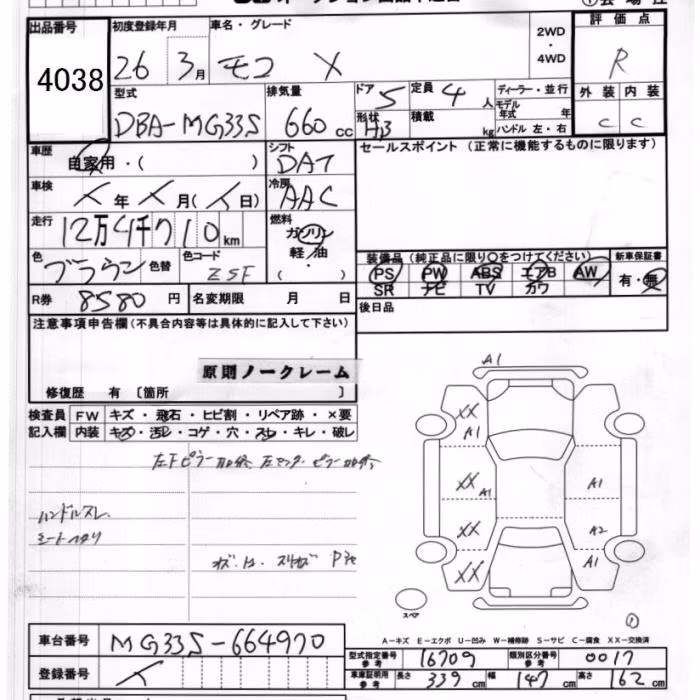 出品番号 4038
初度登録年月 26 3月
車名・グレード モコ X
2WD・4WD
評価点 R
型式 DBA-MG33S
排気量 660 cc
ドア 5
定員 4 人
形状 HB
積載 kg
ディーラー・並行
モデル年式 年
ハンドル 左・右
外装 C
内装 C
車歴 自家用・( )
シフト DAT
セールスポイント (正常に機能するものに限ります)
車検 年 月( 日)
冷房 AAC
走行 12万4千710 km
燃料 ガソリン 軽/油 ( )
色 ブラウン 色替
色コード ZSF
装備品 (純正品に限り○をつけてください)
PS PW ABS エアB AW
SR ナビ TV カワ
新車保証書 有・無
R券 8580 円
名変期限 月 日
後日品
注意事項申告欄 (不具合内容等は具体的に記入して下さい)
原則ノークレーム
修復歴 有 〔箇所 〕
検査員記入欄
FW キズ・飛石・ヒビ割・リペア跡・×要
内装 キズ・汚レ・コゲ・穴・スレ・キレ・破レ
ハンドルスレ
シートヘタリ
A1
XX A1
XX A1
XX
XX
A1
A2
A1
スペア
A-キズ E-エクボ U-凹み W-補修跡 S-サビ C-腐食 XX-交換済
車台番号 MG33S-664970
登録番号
型式指定番号 参考 16709
類別区分番号 参考 0017
車庫証明用 参考 長さ 339 cm 幅 147 cm 高さ 162 cm